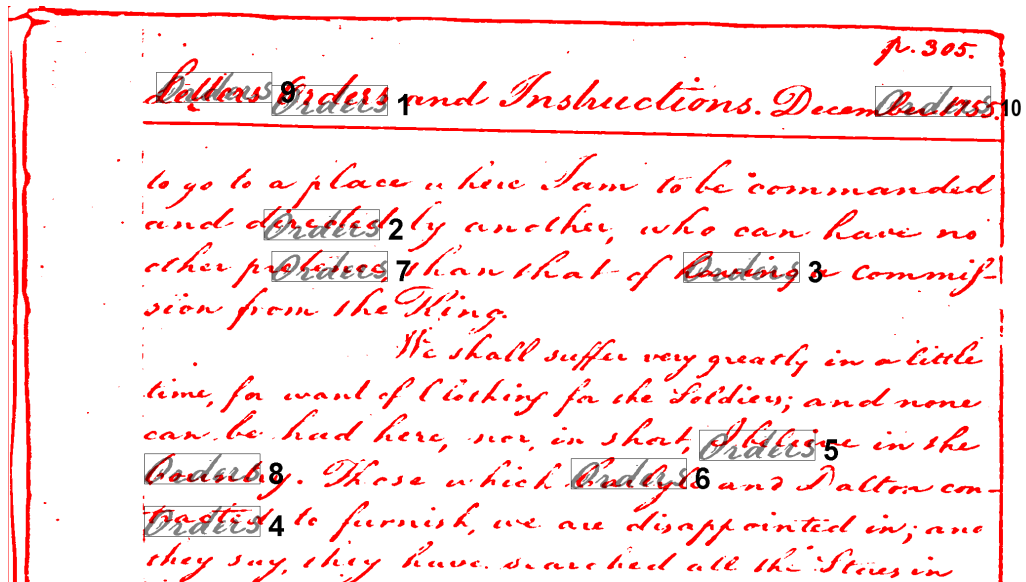 p. 305.
Letters 9 Orders 1 and Instructions. December 1755. 10
to go to a place where I am to be commanded
and directed 2 by another, who can have no
other 7 than that of having 3 a commis-
sion from the King.
We shall suffer very greatly in a little
time, for want of Clothing for the Soldiers; and none
can be had here, nor, in short, I believe 5 in the
Country 8. Those which Carlyle 6 and Dalton con-
tracted 4 to furnish, we are disappointed in; and
they say, they have searched all the Stores in